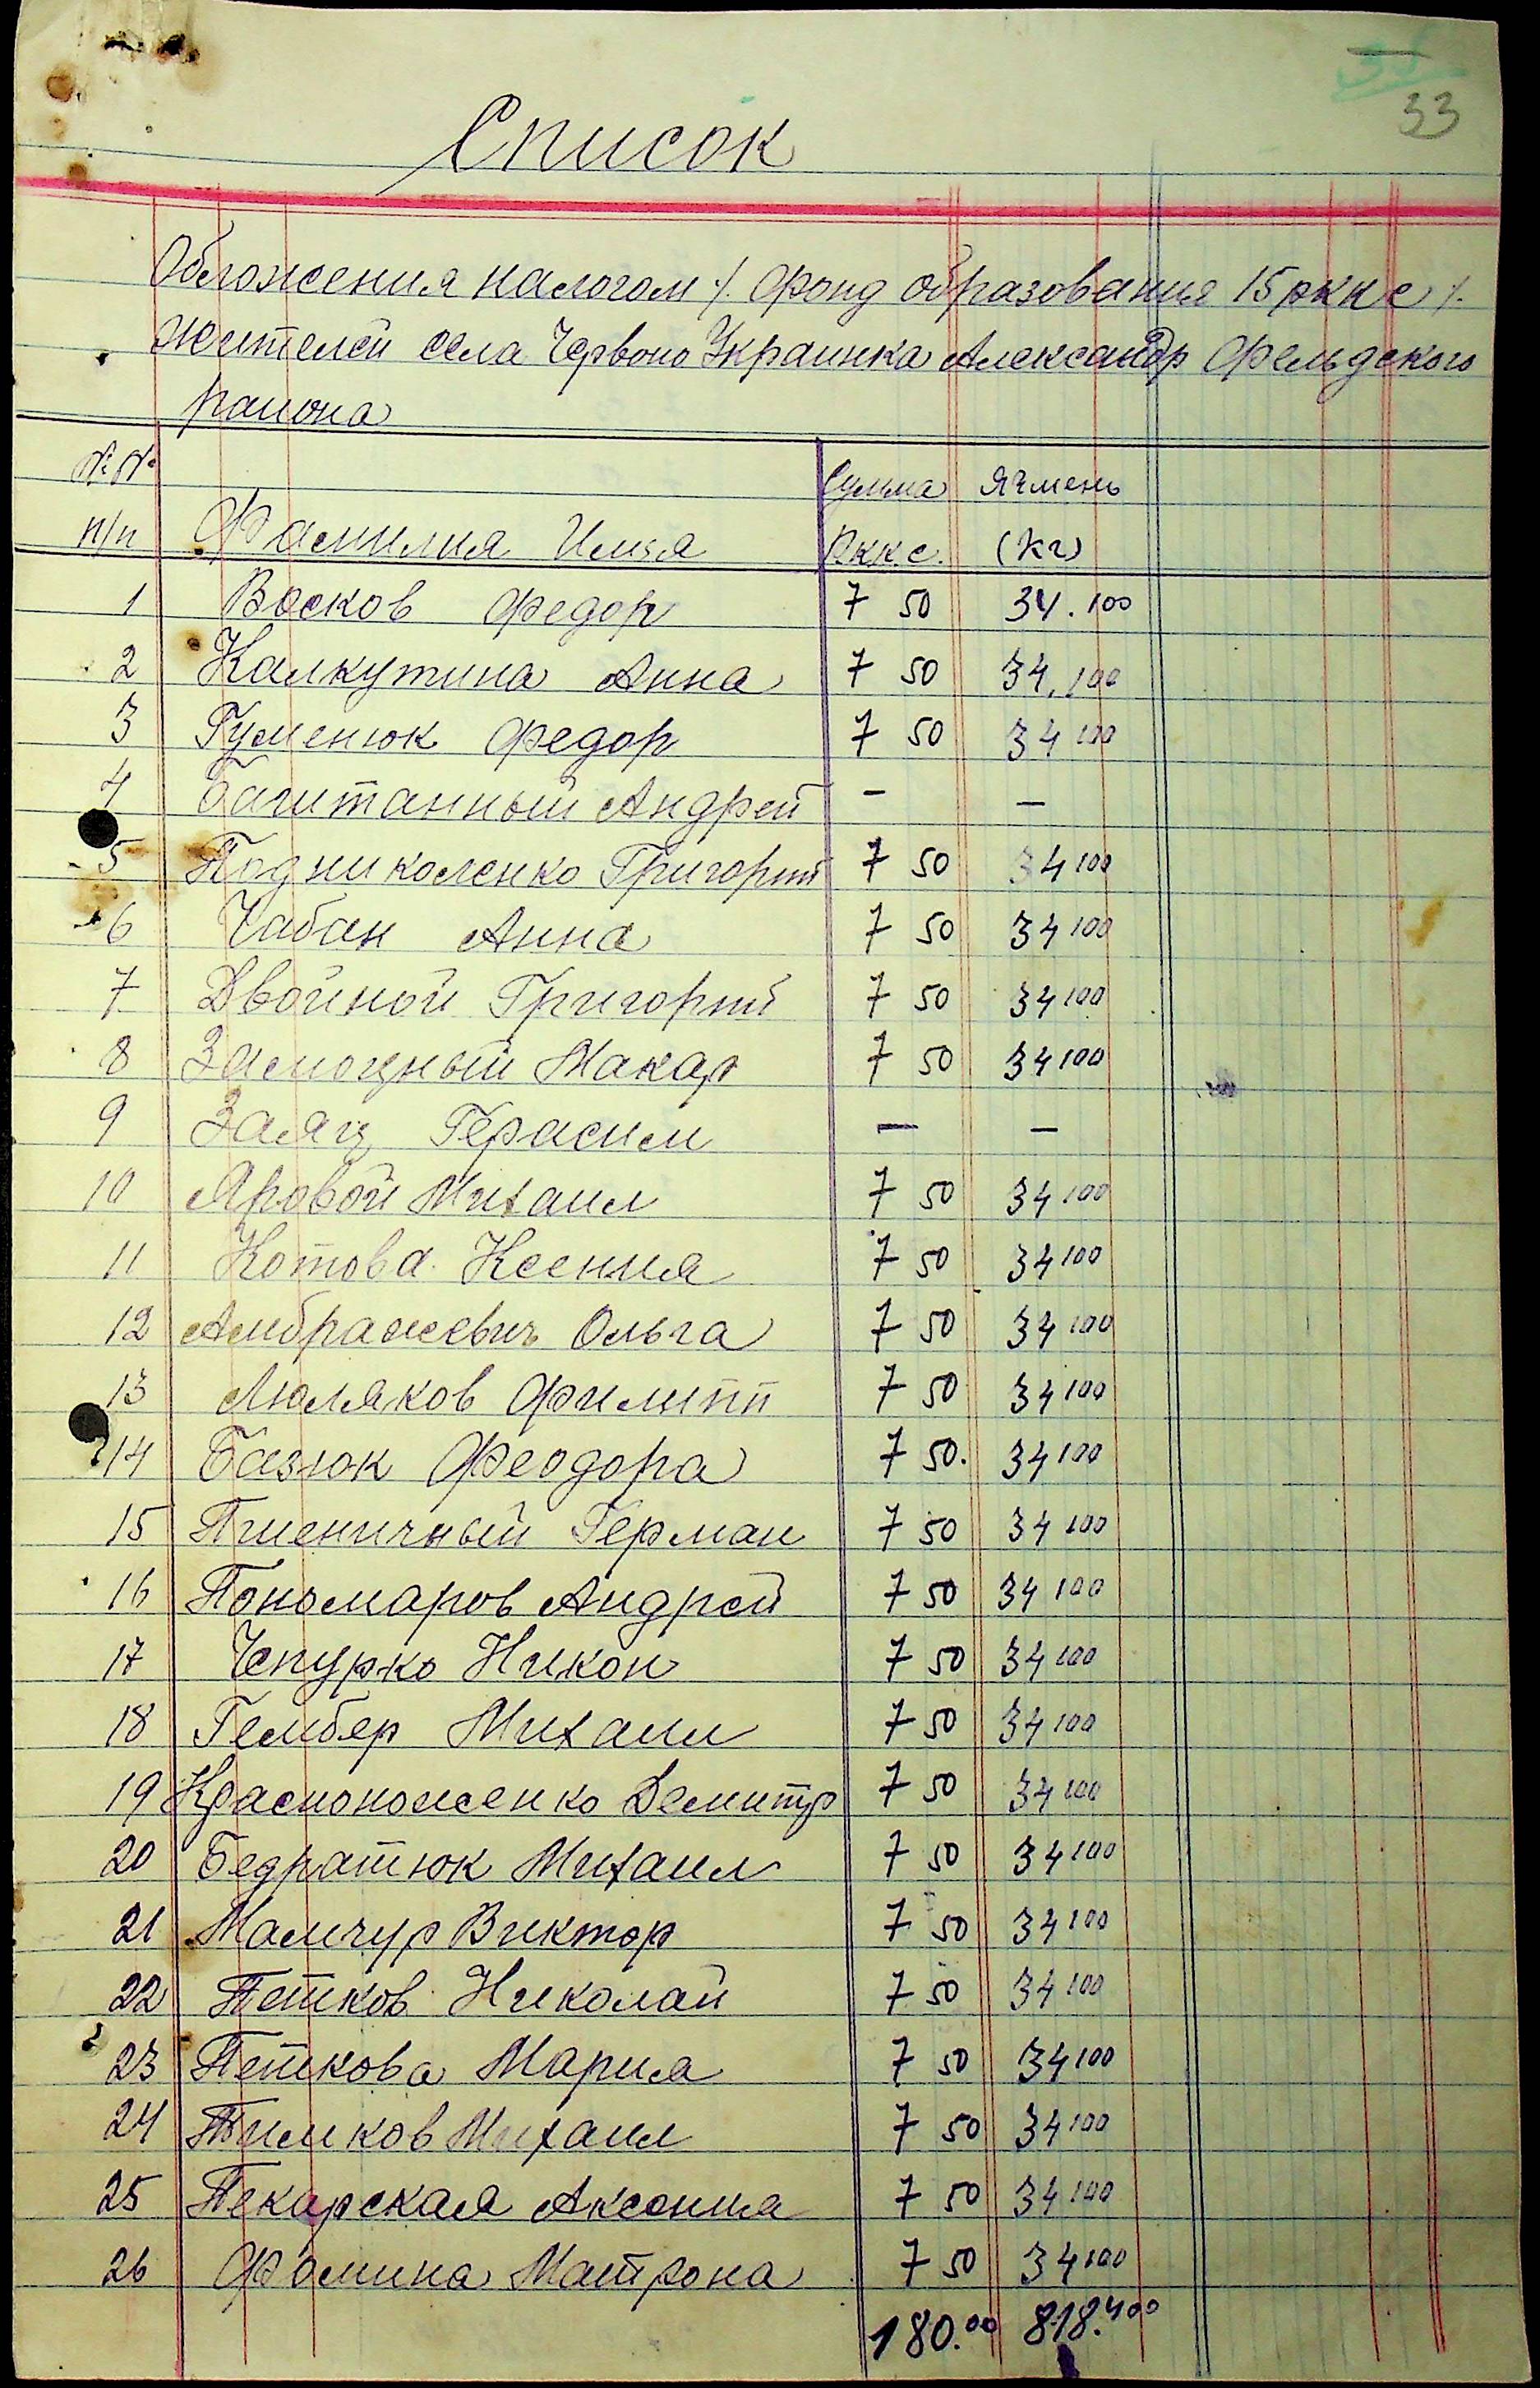 33
Список
Обложения налогом /. Фонд образования 15 ркке /.
жителей села Червоно Украинка Александр Фельдского
района
№ № Сумма Ячмень
п/п Фамилия Имя Рккс. (кг)
1 Восков Федор 7 50 34.100
2 Калкутина Анна 7 50 34.100
3 Гуменюк Федор 7 50 34 100
4 Багитанный Андрей - -
5 Подниколенко Григорий 7 50 34 100
6 Чабан Анна 7 50 34 100
7 Двойной Григорий 7 50 34 100
8 Замоцный Макар 7 50 34 100
9 Заяц Герасим - -
10 Яровой Михаил 7 50 34 100
11 Котова Ксения 7 50 34 100
12 Амбражевич Ольга 7 50 34 100
13 Люляков Филипп 7 50 34 100
14 Базюк Феодора 7 50. 34 100
15 Пшеничный Герман 7 50 34 100
16 Пономаров Андрей 7 50 34 100
17 Чепурко Никон 7 50 34 100
18 Гембер Михаил 7 50 34 100
19 Красноноженко Демитр 7 50 34 100
20 Бедратюк Михаил 7 50 34 100
21 Мамчур Виктор 7 50 34 100
22 Петков Николай 7 50 34 100
23 Петкова Мария 7 50 34 100
24 Михаил 7 50 34 100
25 Пекарская Аксения 7 50 34 100
26 Фомина Матрона 7 50 34 100
180.00 818.400